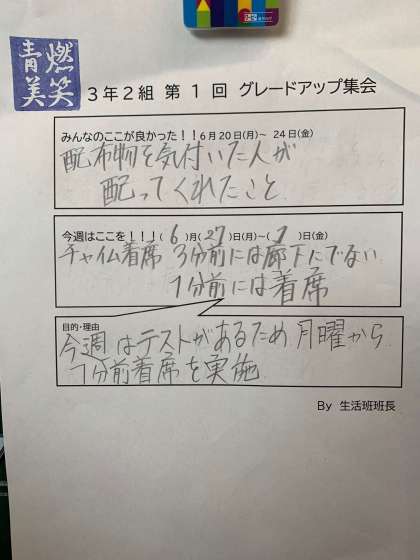 青 燃
美 笑
3年2組 第 1 回 グレードアップ集会
みんなのここが良かった！！6月20日(月)～ 24日(金)
配布物を気付いた人が
配ってくれたこと
今週はここを！！！( 6 )月( 27 )日(月)～( 1 )日(金)
チャイム着席 3分前には廊下にでない
1分前には着席
目的・理由
今週はテストがあるため、月曜から
1分前着席を実施
By 生活班班長